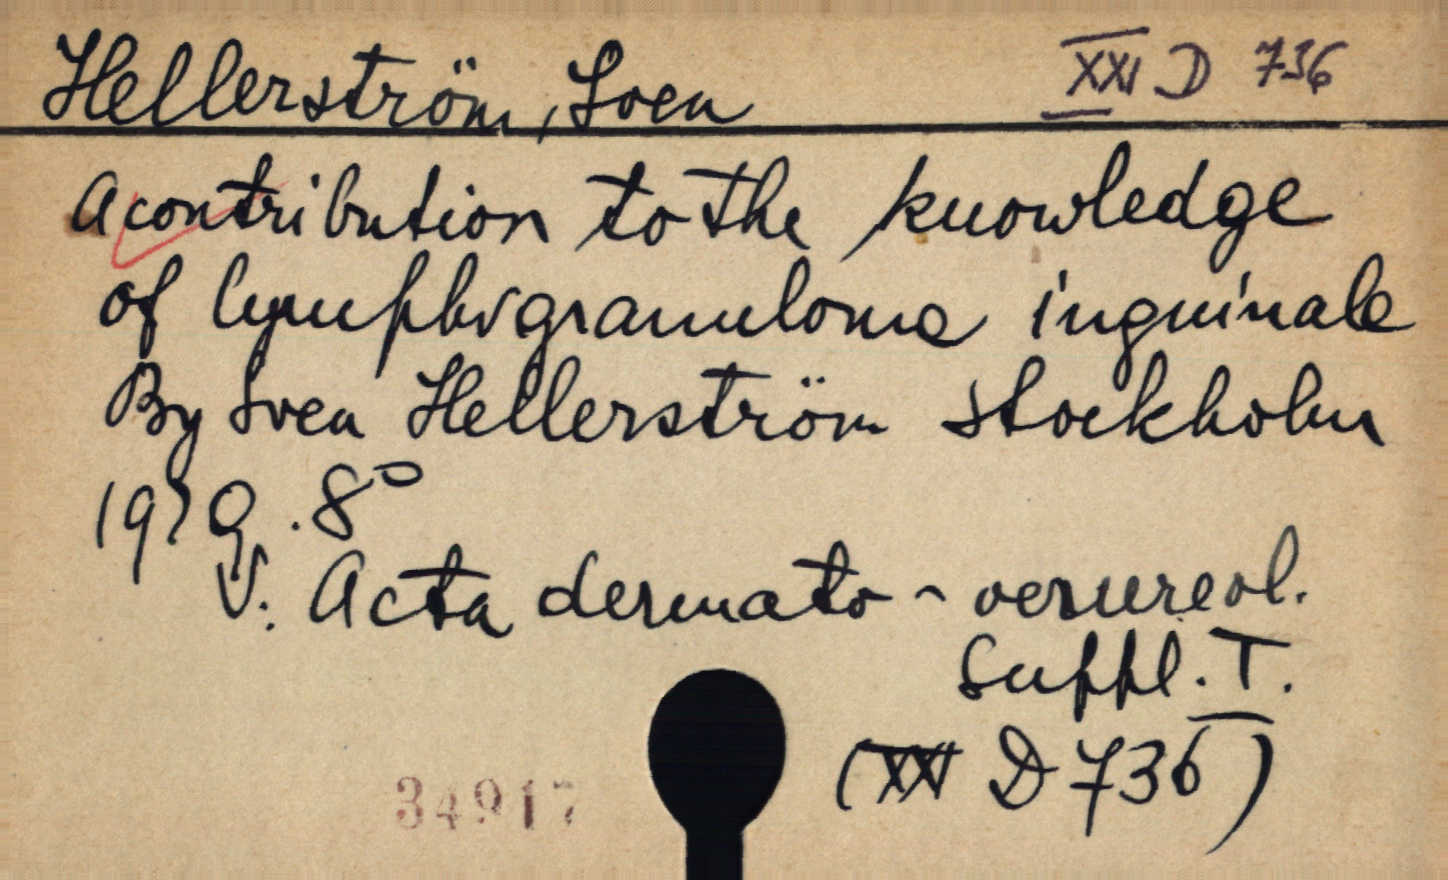 Hellerström, Sven XXI D 736
A contribution to the knowledge
of lymphogranuloma inguinale
By Sven Hellerström Stockholm
1929. 8°
V. Acta dermato-venereol.
Suppl. I.
(XXI D 736)
34917